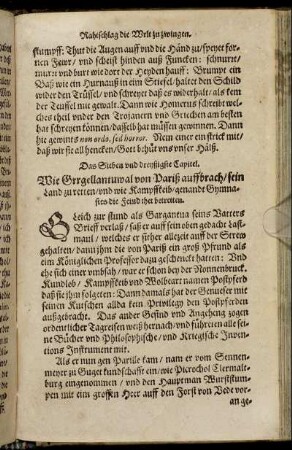 Rahtschlag die Welt zuzwingen.
stumpff: Thut die Augen auff vnd die Händ zu/ speyet for-
nen Fewr/ vnd scheißt hinden auß Funcken: schnurrt/
murrt vnd burrt wie dort der Heyden hauff: Brumpt ein
Baß wie ein Hurnauß in eim Stiefel/ haltet den Schild
wider den Trüssel/ vnd schreyet daß es widerhal/ als kem
der Teuffel mit gewalt. Dann wie Homerus schreibt wel-
ches theil vnder den Trojanern vnd Griechen am besten
hat schreyen können/ dasselb hat müssen gewinnen. Dann
hie gewints non ardo, sed horror. Nem einer ein strick mit/
daß wir sie all hencken/ Gott behüt vns vnser Hälß.
Das Siben vnd dreyssigste Capitel.
Wie Gurgellantuwal von Pariß auffbrach/ sein
Land zu retten/ vnd wie Kampffkeib/ genandt Gymna-
stes die Feind iher betretten.
Gleich zur stund als Gargantua seins Vatters
Brieff verlaß/ saß er auff sein oben gedacht Last-
maul/ welches er sither allezeit auff der Strew
gehalten/ dann jhm die von Pariß ein groß Pfrund als
eim Königlichen Professor dazu geschenckt hatten: Vnd
ehe sich einer vmbsah/ war er schon bey der Nonnenbruck.
Kundlob/ Kampffkeib vnd Wolbeart namen Postpferd
daß sie jhm folgeten: Dann damals hat der Genueser mit
seinen Kutschen allda kein Privilegy den Postpferden
außgebracht. Das ander Gesind vnd Angeheng zogen
ordenlicher Tagreisen weiß hernach/ vnd führeten alle sei-
ne Bücher vnd Philosophische/ vnd Kriegische Inven-
tions Instrument mit.
Als er nun gen Partille kam/ nam er vom Sennen-
meyer zu Guget kundschafft ein/ wie Picrochol Clermalt-
burg eingenommen/ vnd den Hauptman Wurststum-
pen mit eim grossen Heer auff den Forst von Vede vor-
an ge-